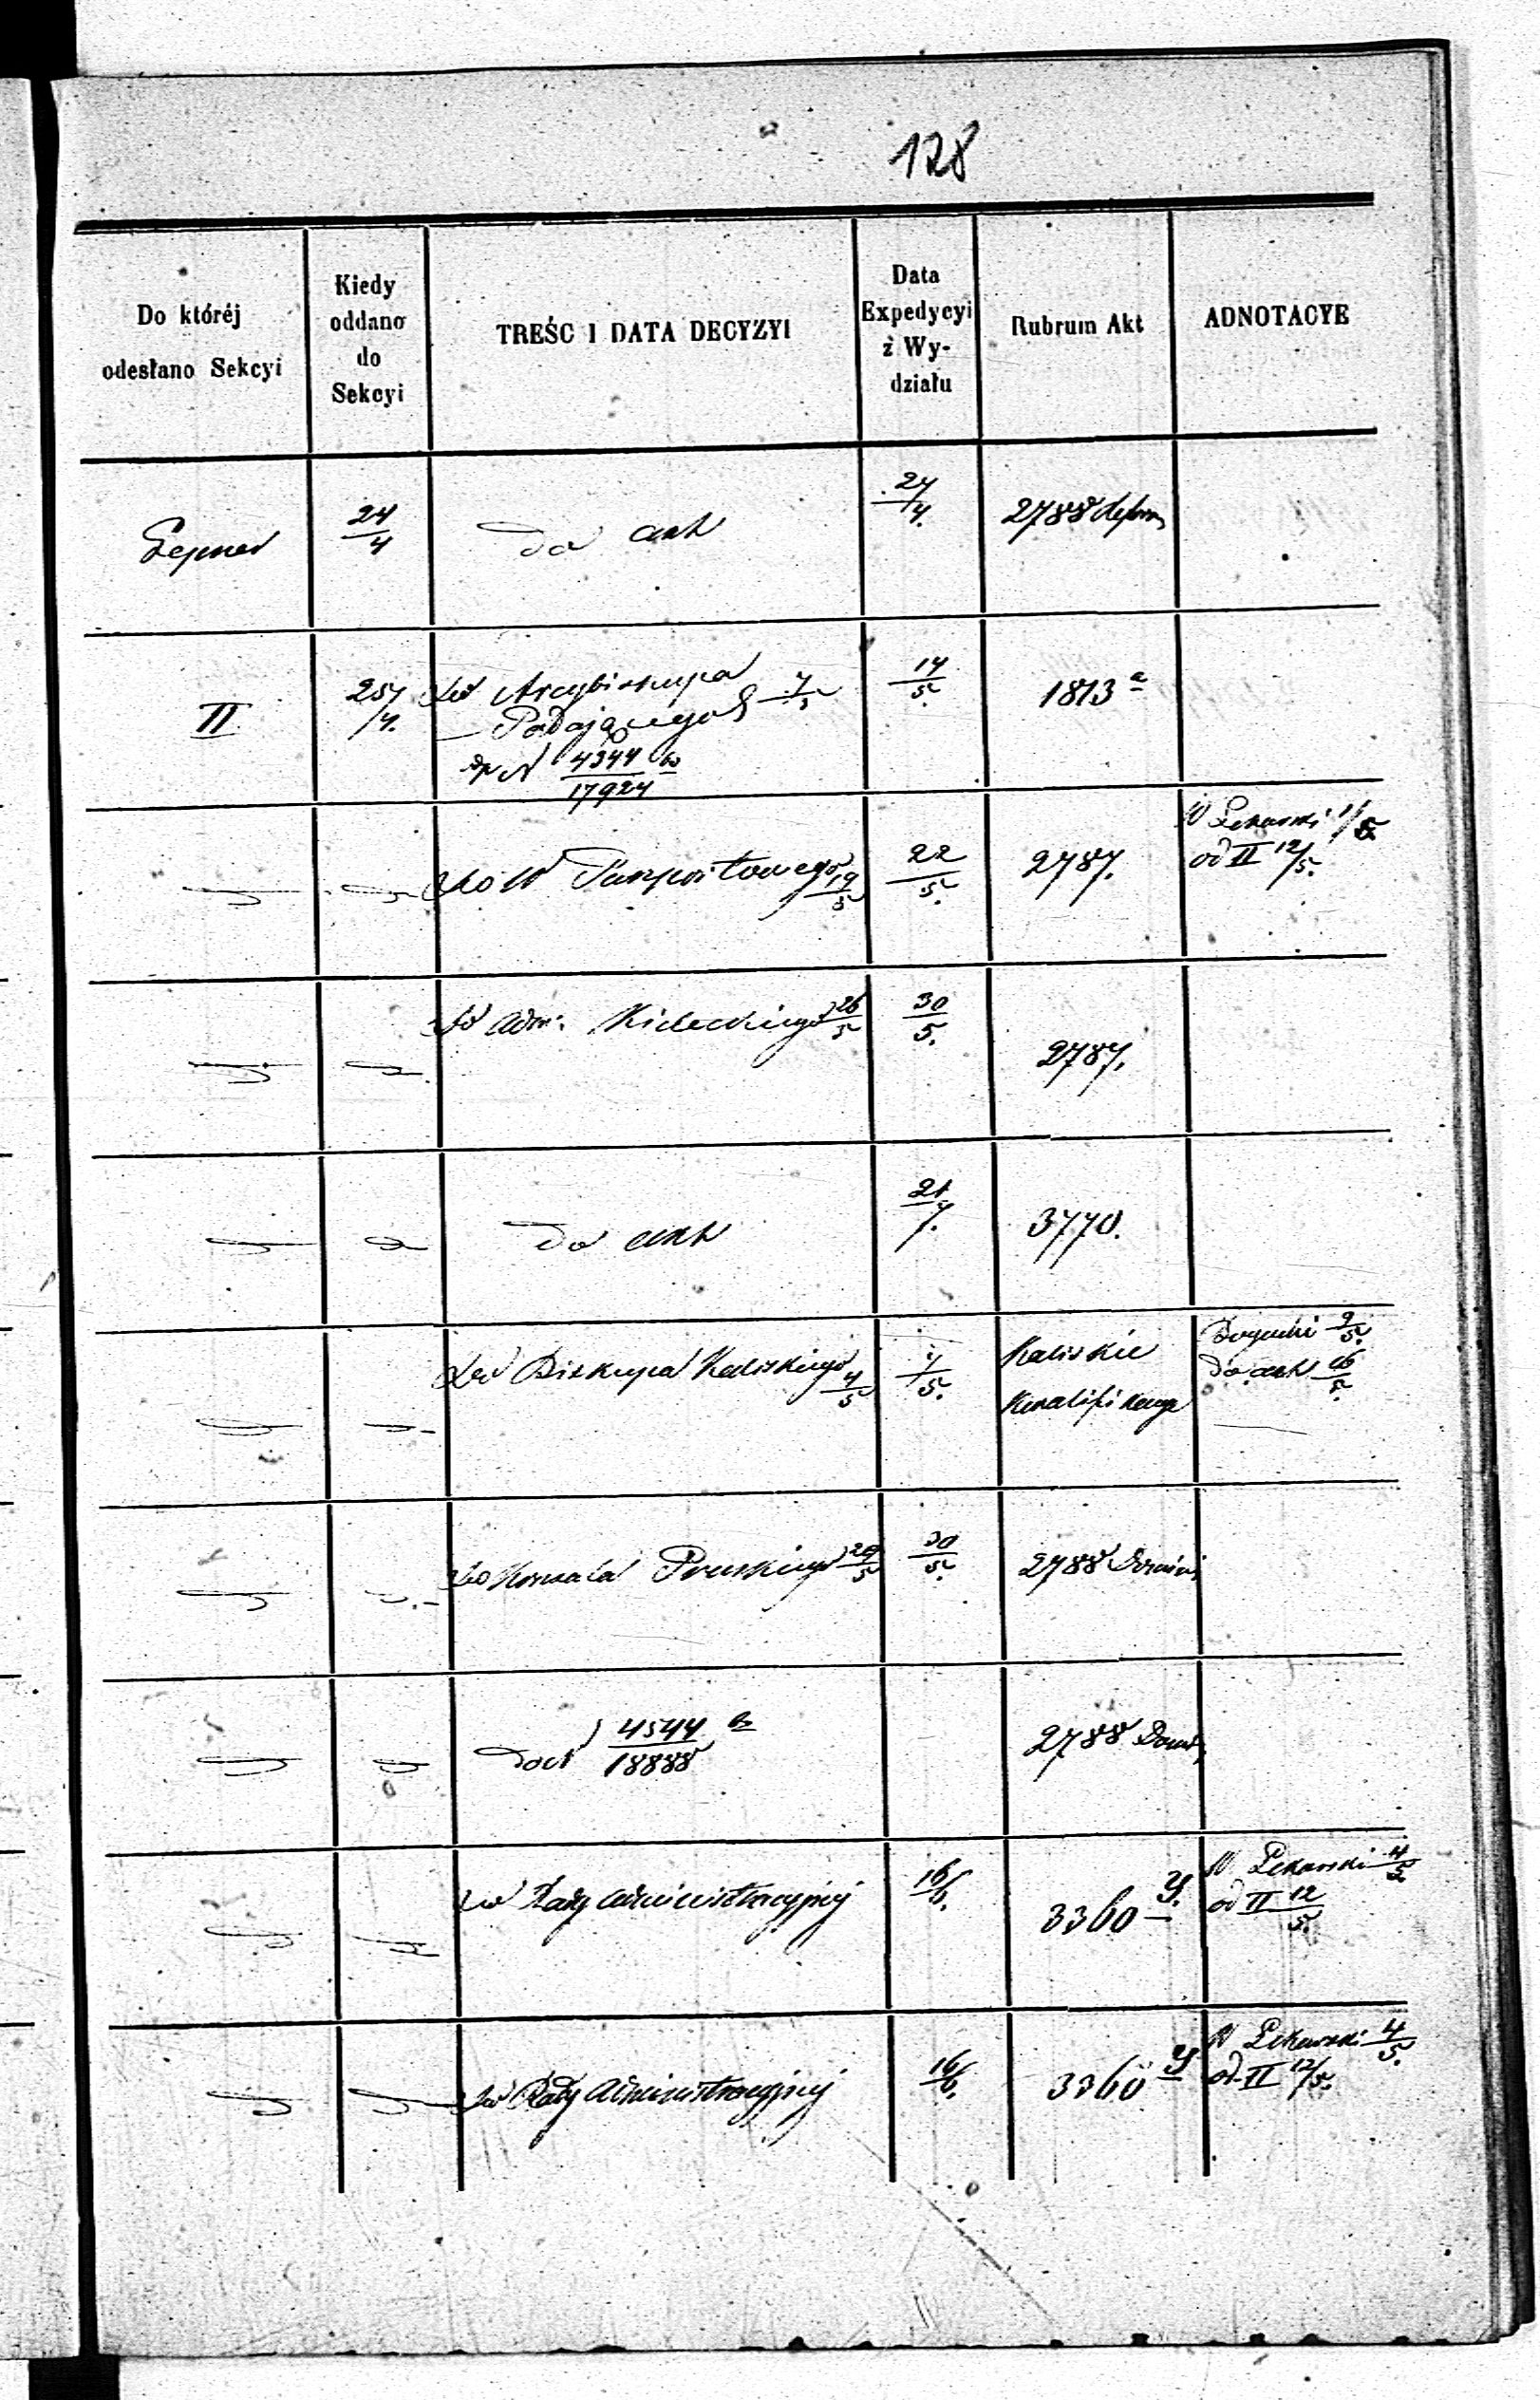 128
Do któréj
odesłano Sekcyi
Kiedy
oddano
do
Sekcyi
TREŚC I DATA DECYZYI
Data
Expedycyi
z Wy-
działu
Rubrum Akt
ADNOTACYE
24/4
do akt
24/4.
2788
II
25/4.
Do Arcybiskupa
Podającego
4344/17924
14/5.
1813 a
Do W Paszportowego 19/5
22/5.
2787.
W Pekarski
od II 12/5.
Do Adm: Kieleckiego 26/5
30/5.
2787.
do akt
21/7.
3770.
Do Biskupa Kaliskiego 4/5
7/5.
Kaliskie
Kwalifikacye
Bogucki 9/5.
do akt 16/5.
Do Konsula Pruskiego 29/5
30/5.
2788
do N 4544/18888
2788
Do Rady Administracyjnej
16/6.
3360 y.
W Pekarski 4/5
od II 12/5.
Do Rady Administracyjnej
16/6.
3360 y
W Pekarski 4/5.
od II 12/5.